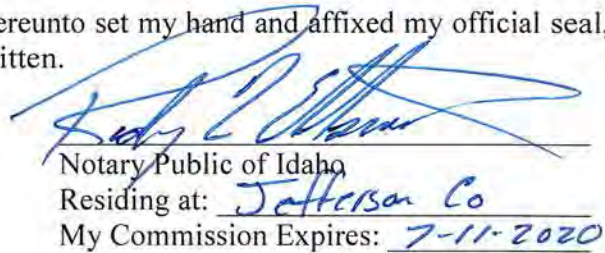 ereunto set my hand and affixed my official seal,
itten.
Notary Public of Idaho
Residing at: Jefferson Co
My Commission Expires: 7-11-2020